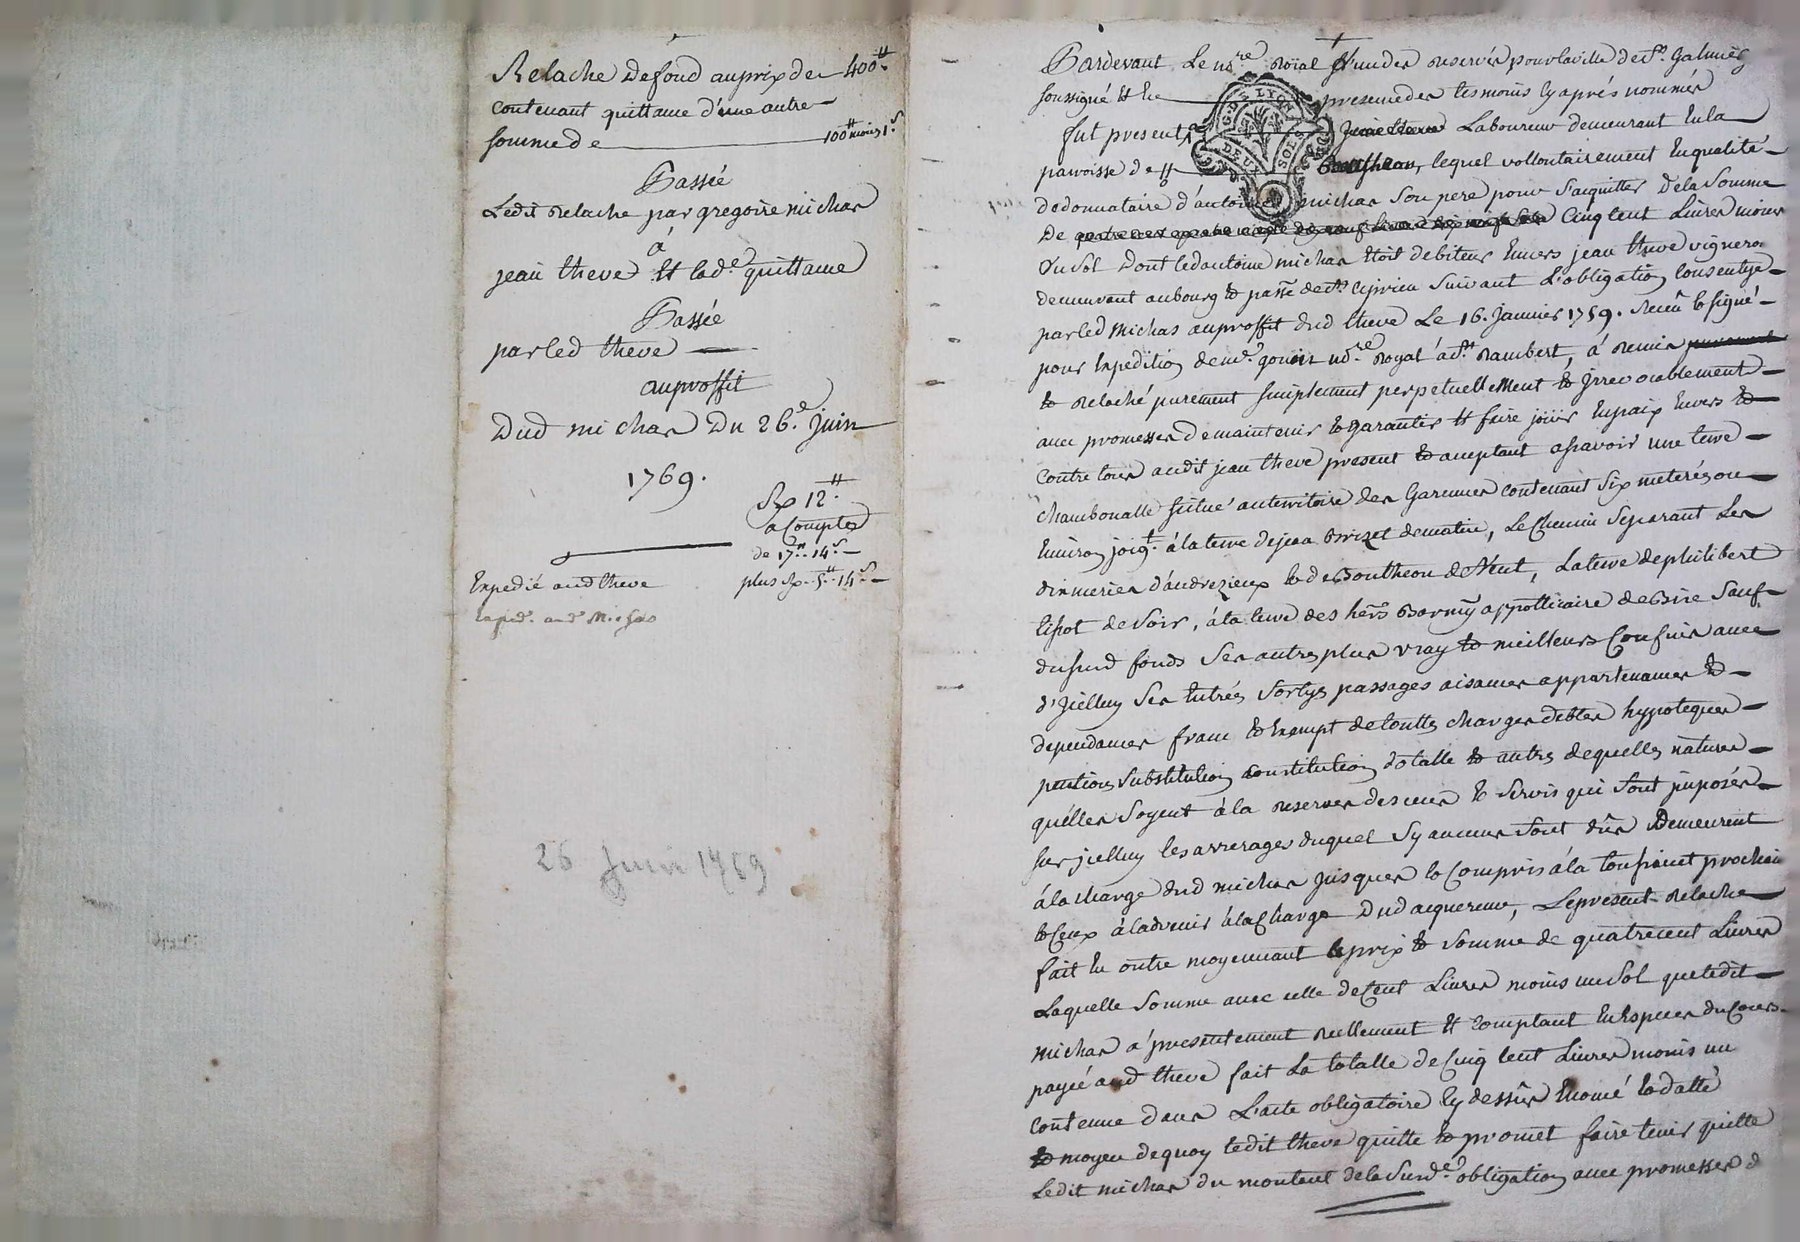 Relache de fond au prix de 400 ₶
contenant quittance d'une autre
somme de 100 ₶ moins 1 s
Passée
Ledit relache par gregoire michas
à
jean theve Et lad.e quittance
Passée
par led theve
au proffit
Dud michas Du 26.e juin
1769.
Rx 12 ₶
a Compte
de 17 ₶ 14 s
Expedié aud theve
plus Rx 5 ₶ 14 s
Exped. aud Michas
26 Juin 1769
Pardevant Le nre Roial reservés pour la ville de St Galmier
soussigné Et En presence des tesmoins cy aprés nommés
G. DE LYON
DEUX SOLS
fut present Laboureur demeurant En la
paroisse de Bouthéon, lequel vollontairement En qualité
de donnataire d'antoine michas son pere pour s'acquitter de la somme
De Cinq cent Livres moins
Un sol Dont led antoine michas Etoit debiteur Envers jean theve vigneron
demeurant au bourg Et passe de St Ciprien suivant L'obligation Consentye
par led michas au proffit dud theve Le 16. Janvier 1759. Receu Et signé
pour Expedition de me. nre. Royal à St Rambert, à Remis
Et Relaché purement simplement perpetuellement Et jrrevocablement
avec promesses de maintenir Et garantir Et faire joüir En paix Envers Et
Contre tous audit jean theve present Et acceptant assavoir une terre
chambonalle scitué au territoire des Garennes contenant six meterées ou
Environ joigt. à la terre de jean brizet de matin, Le Chemin separant Les
dixmeries d'andrezieux Et de Bouthéon de Vent, La terre de philibert
de soir, à la terre des hers appotticaire de Bize sauf
du sud fonds ses autres plus vray Et meilleurs Confins avec
d'jcelluy ses Entrées sortys passages aisances appartenances Et
dependances franc Et Exempt de touttes charges debtes hypoteques
pention substitution constitution dotalle Et autres de quelles natures
quelles soyent à la reserve des cens Et servis qui sont jmposés
sur jcelluy les arrerages duquel sy aucuns sont dûs Demeurent
à la charge dud michas jusques Et Compris à la toussaint prochain
Et Ceux à l'advenir à la Charge Dud acquereur, Le present relache
fait En outre moyennant le prix Et somme de quatre cent Livres
Laquelle somme avec celle de Cent Livres moins un sol que ledit
michas à presentement reellement Et Comptant En Especes du Cours
payé aud theve fait La totalle de Cinq cent Livres moins un
contenue dans L'acte obligatoire cy dessus Enoncé Et datté
Et moyen de quoy ledit theve quitte Et promet faire tenir quitte
Ledit michas du montant de la susde. obligation avec promesses d